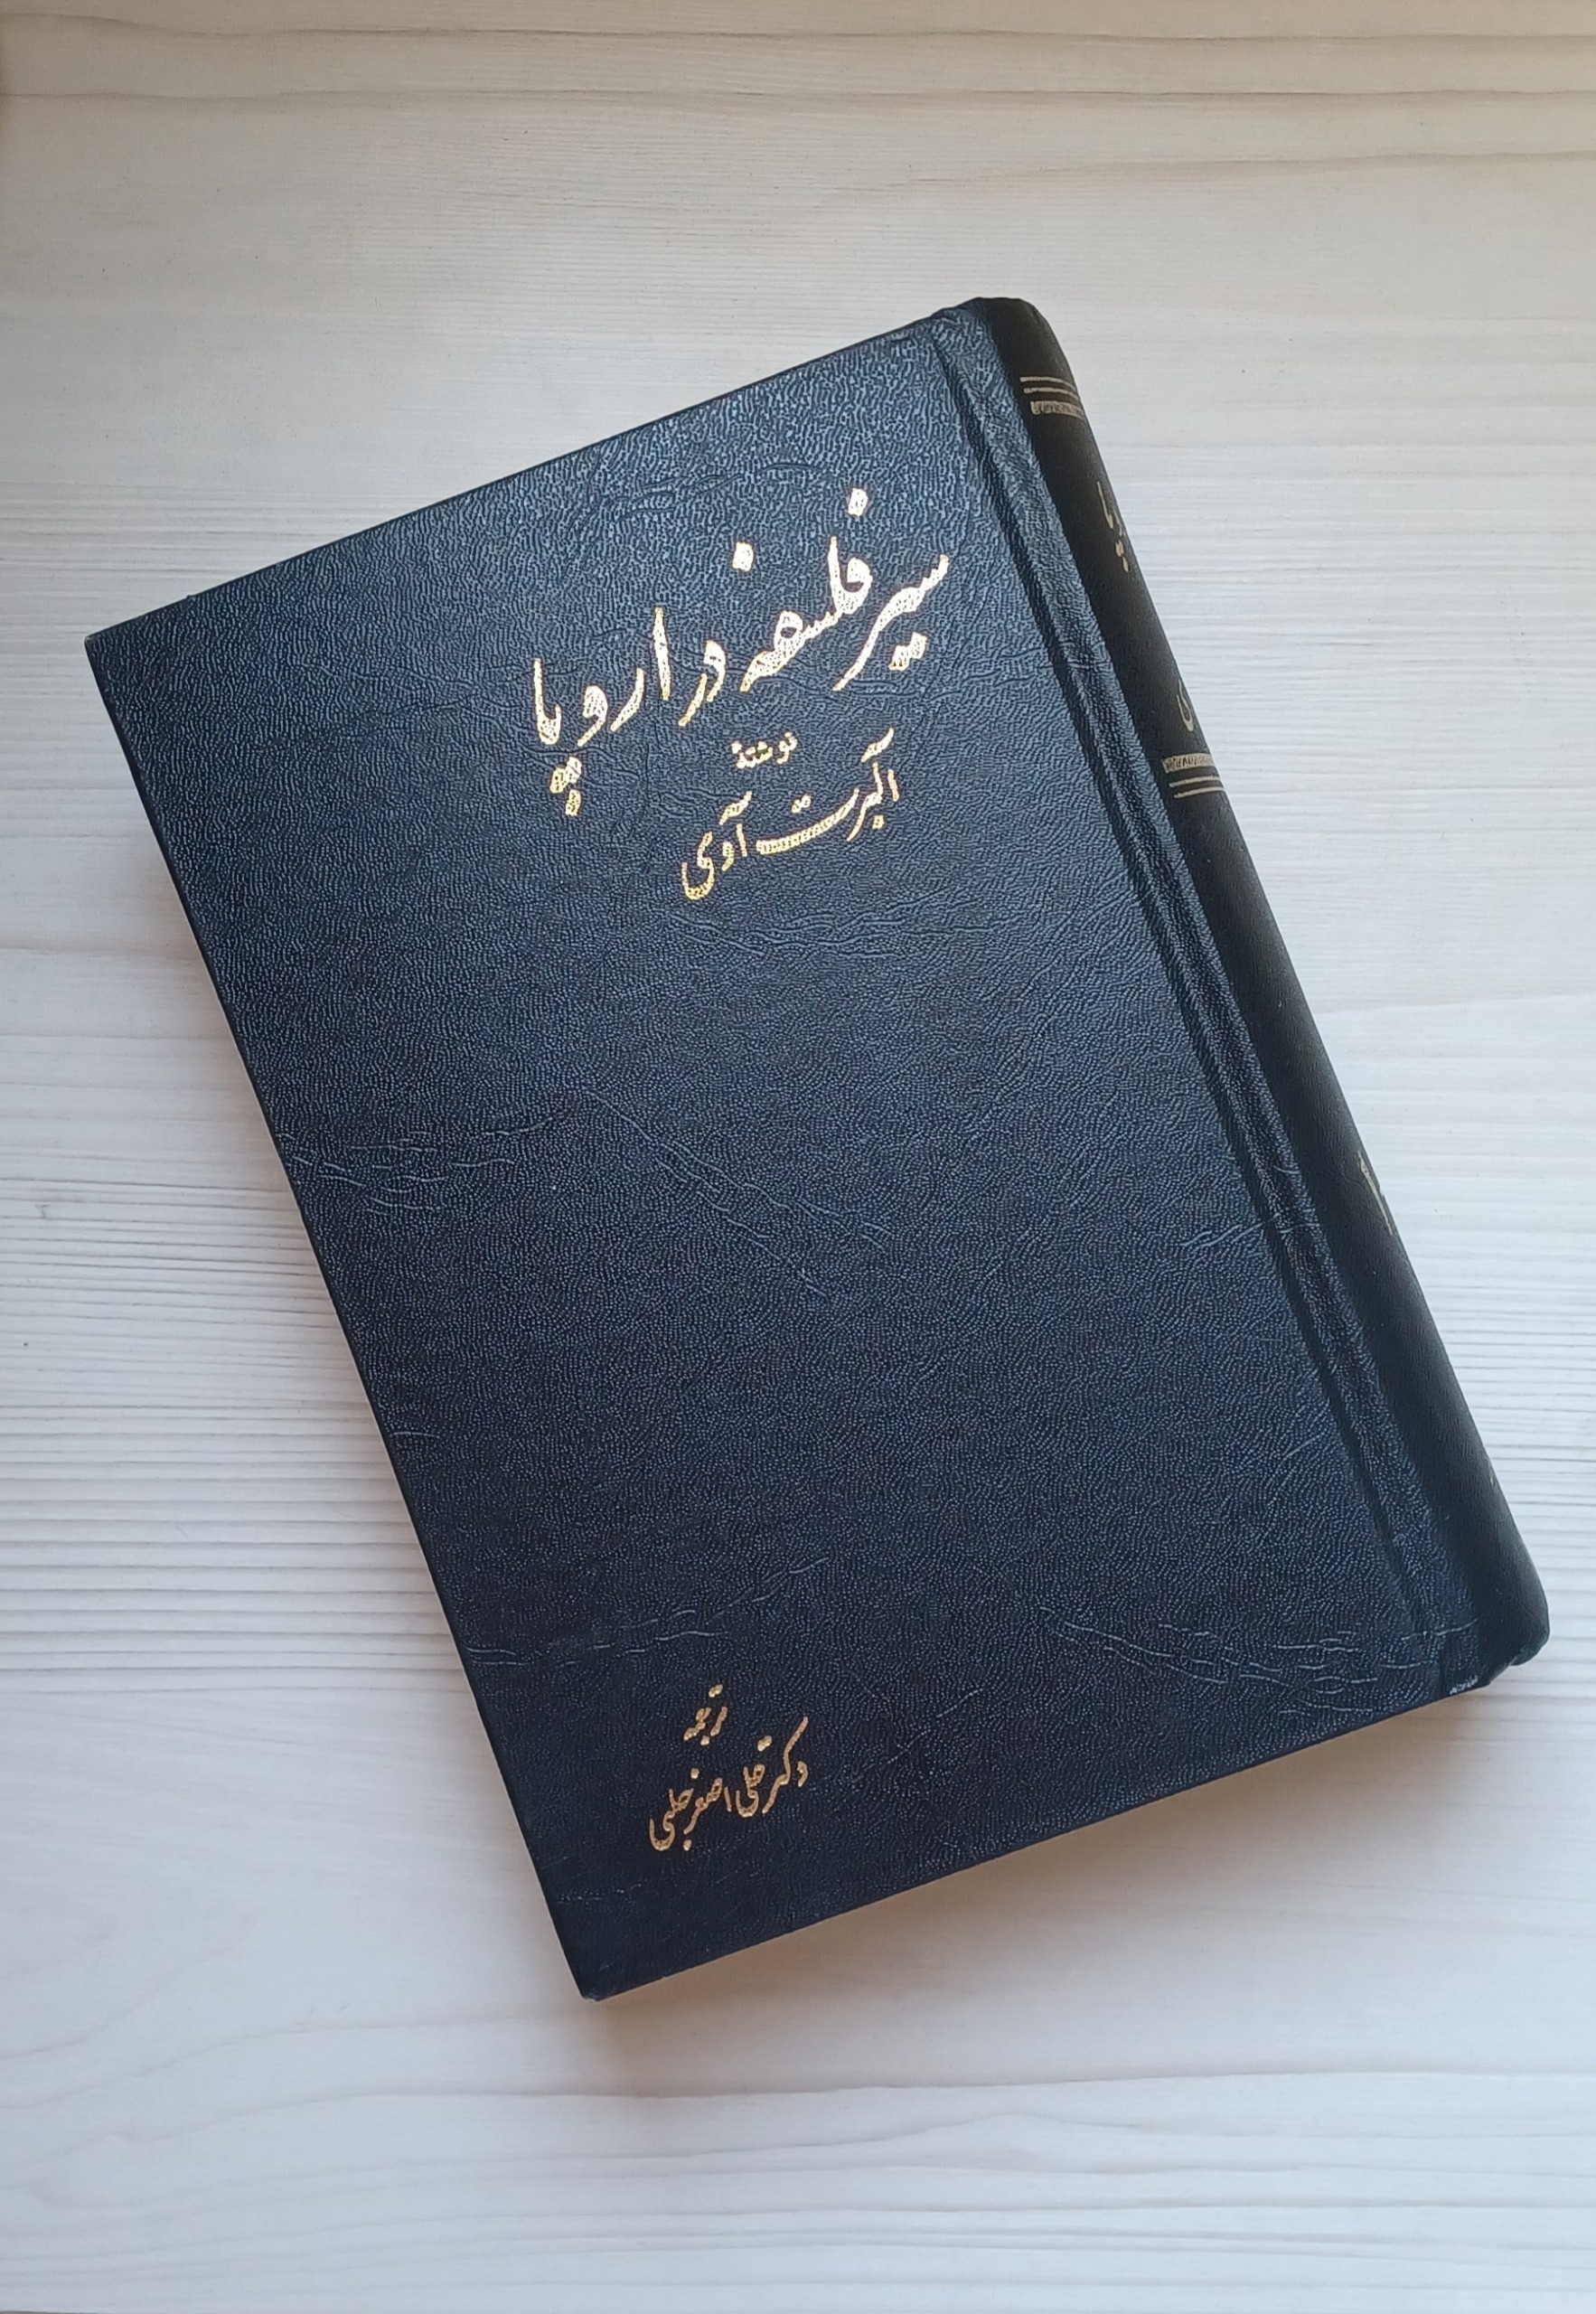 سیر فلسفه در اروپا
نوشتهٔ
آلبرت آوی
ترجمه
دکتر علی اصغر حلبی